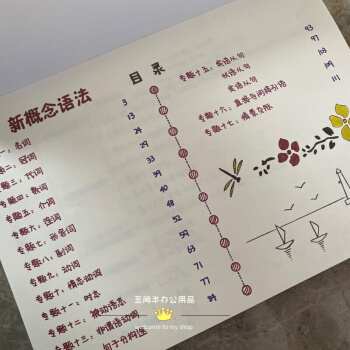 目录
新概念语法
一：名词
二：冠词
专题三：代词
专题四：数词
专题五：介词
专题六：连词
专题七：形容词
专题八：副词
专题九：动词
专题十：情态动词
专题十一：时态
专题十二：被动语态
专题十三：非谓语动词
句子
3
13
24
29
33
39
40
48
52
59
63
71
77
84
专题十五：宾语从句
状语从句
定语从句
专题十六：直接与间接引语
专题十七：情景交际
93
97
103
109
111
办公用品
welcome to my shop